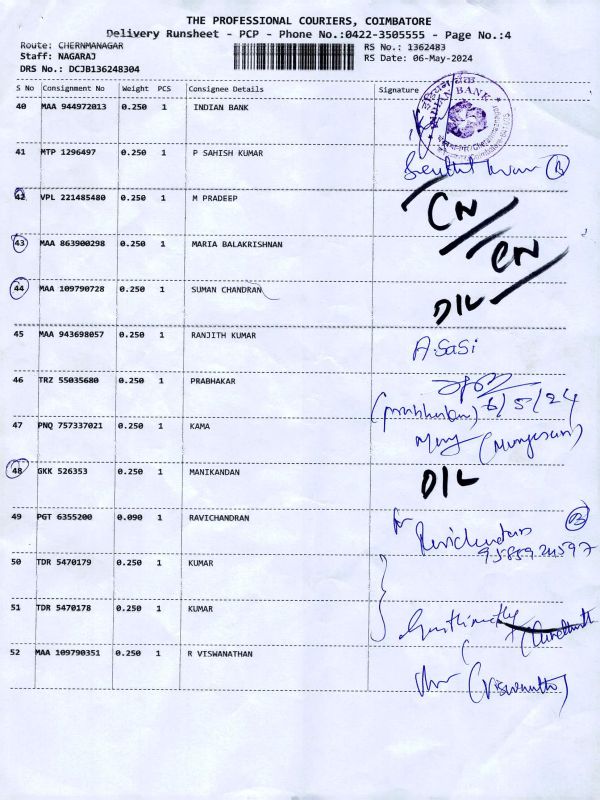 THE PROFESSIONAL COURIERS, COIMBATORE
Delivery Runsheet - PCP - Phone No.:0422-3505555 - Page No.:4
Route: CHERNMANAGAR RS No.: 1362483
Staff: NAGARAJ RS Date: 06-May-2024
DRS No.: DCJB136248304
S No Consignment No Weight PCS Consignee Details Signature
40 MAA 944972013 0.250 1 INDIAN BANK
INDIAN BANK
41 MTP 1296497 0.250 1 P SAHISH KUMAR
42 VPL 221485480 0.250 1 M PRADEEP CN
43 MAA 863900298 0.250 1 MARIA BALAKRISHNAN CN
44 MAA 109790728 0.250 1 SUMAN CHANDRAN D/L
45 MAA 943698057 0.250 1 RANJITH KUMAR A.Sasi
46 TRZ 55035680 0.250 1 PRABHAKAR
6/5/24
47 PNQ 757337021 0.250 1 KAMA
48 GKK 526353 0.250 1 MANIKANDAN D/L
49 PGT 6355200 0.090 1 RAVICHANDRAN
50 TDR 5470179 0.250 1 KUMAR
51 TDR 5470178 0.250 1 KUMAR
52 MAA 109790351 0.250 1 R VISWANATHAN